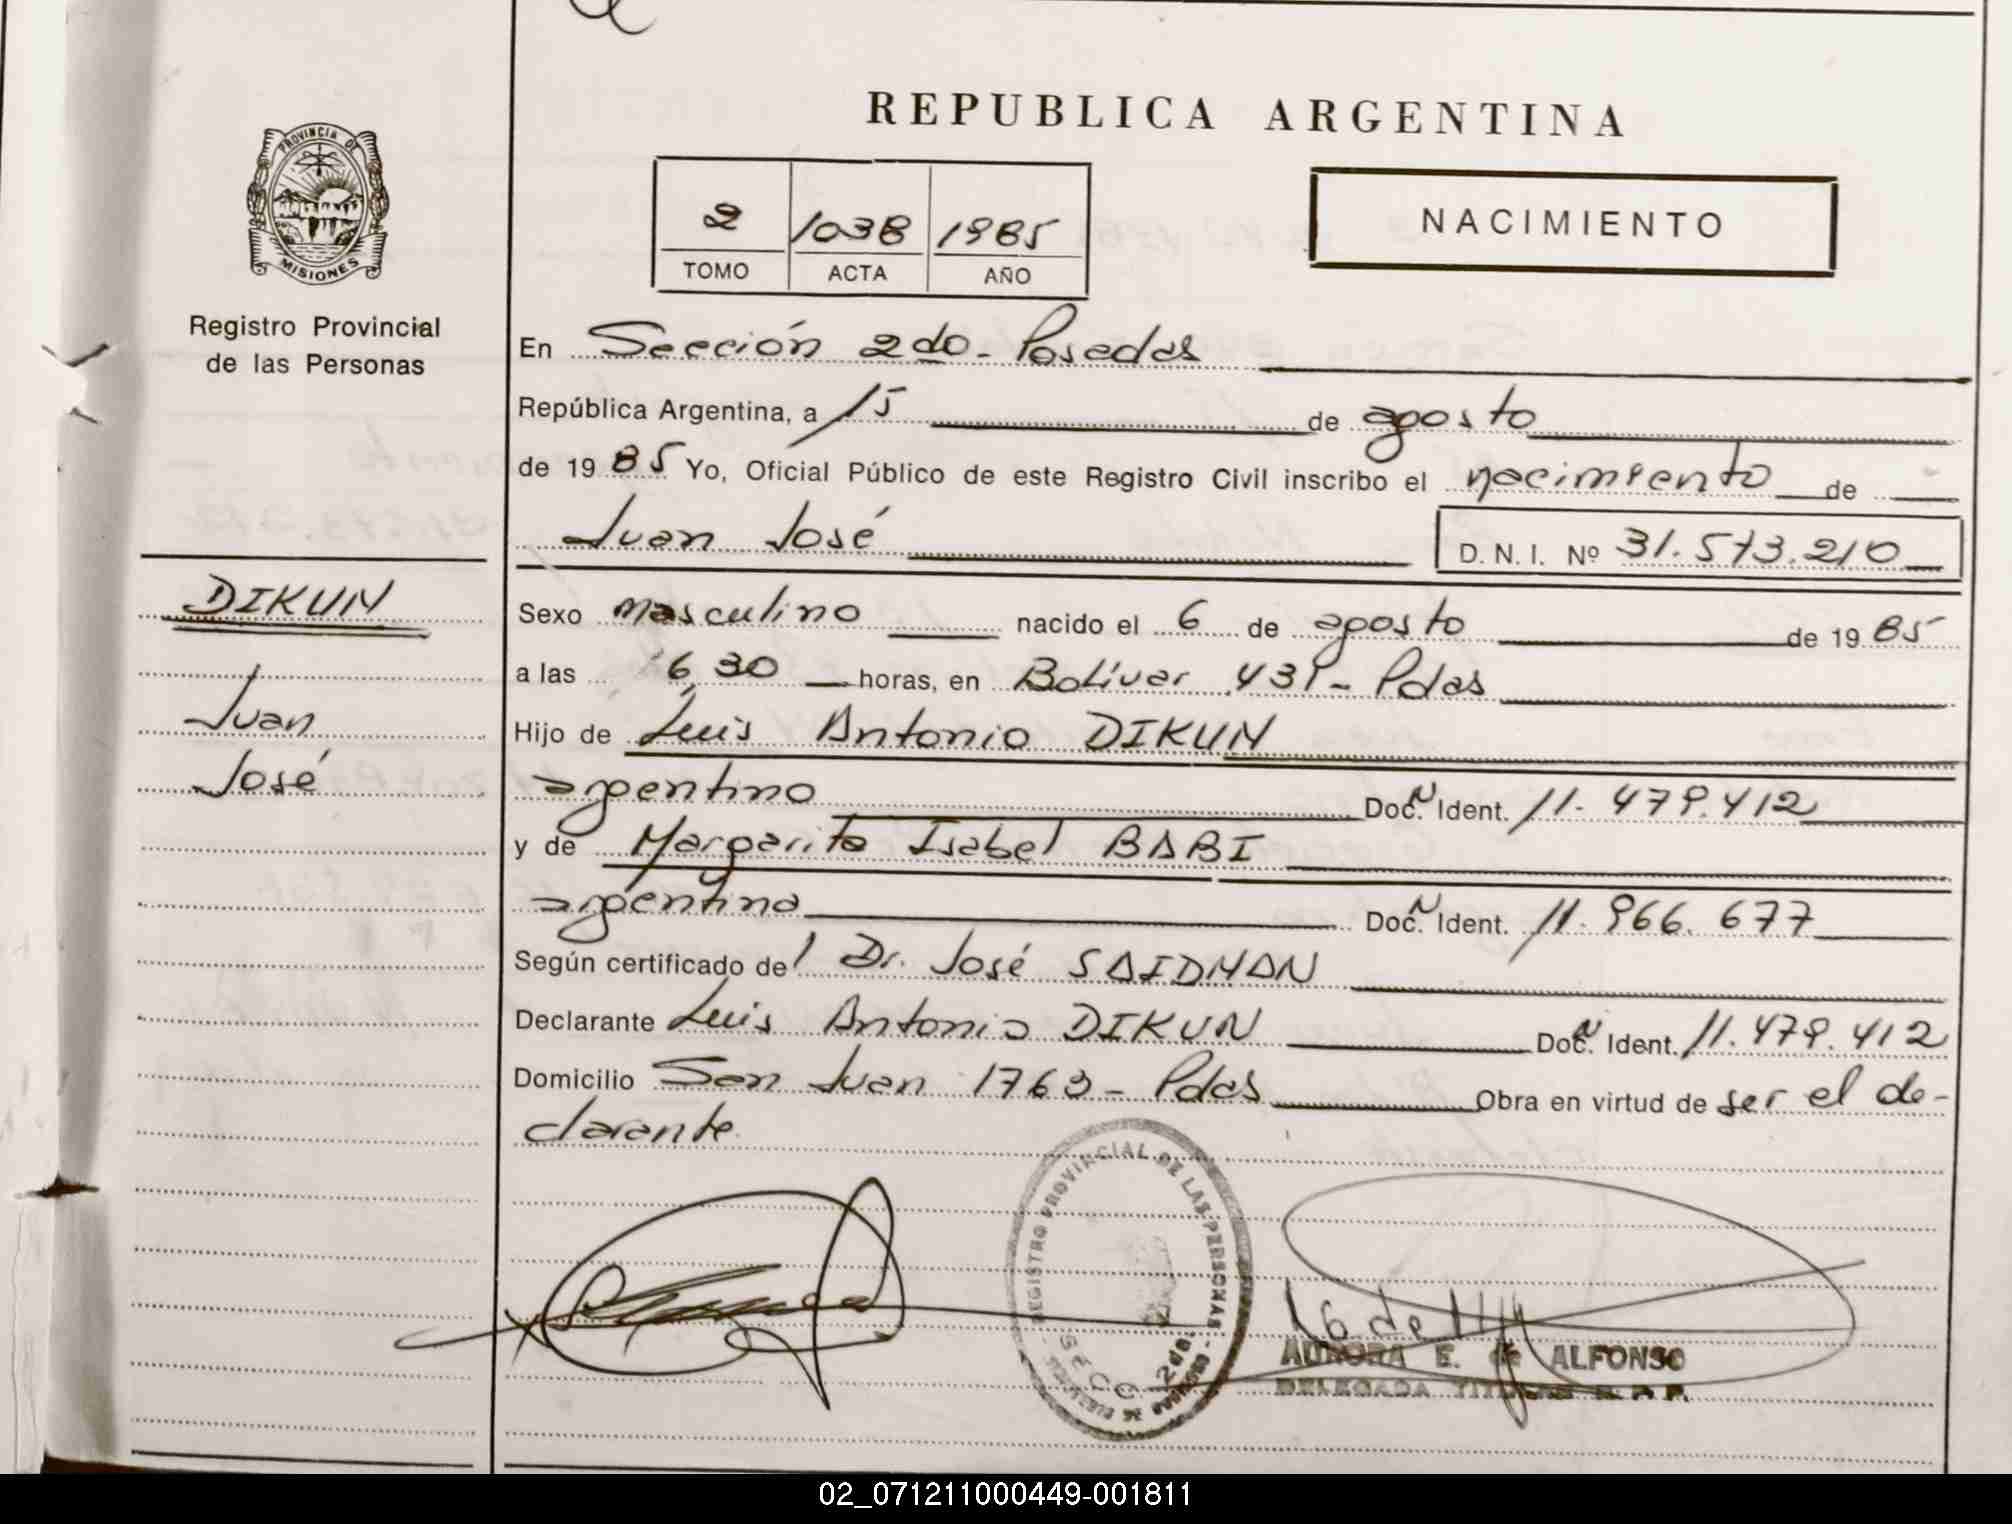 REPUBLICA ARGENTINA
PROVINCIA DE
MISIONES
Registro Provincial
de las Personas
2 1038 1985
TOMO ACTA AÑO
NACIMIENTO
En Sección 2do - Posadas
República Argentina, a 15 de agosto
de 1985 Yo, Oficial Público de este Registro Civil inscribo el nacimiento de
Juan José D.N.I. Nº 31.573.210
DIKUN
Juan
José
Sexo masculino nacido el 6 de agosto de 1985
a las 6,30 horas, en Bolívar 431 - Pdas
Hijo de Luis Antonio DIKUN
argentino Doc. Ident. 11.479.412
y de Margarita Isabel BABI
argentina Doc. Ident. 11.966.677
Según certificado del Dr. José SAIDMAN
Declarante Luis Antonio DIKUN Doc. Ident. 11.479.412
Domicilio San Juan 1763 - Pdas Obra en virtud de ser el de-
clarante.
REGISTRO PROVINCIAL DE LAS PERSONAS
SECC. 2da.
AURORA E. de ALFONSO
DELEGADA TITULAR R. P. P.
02_071211000449-001811